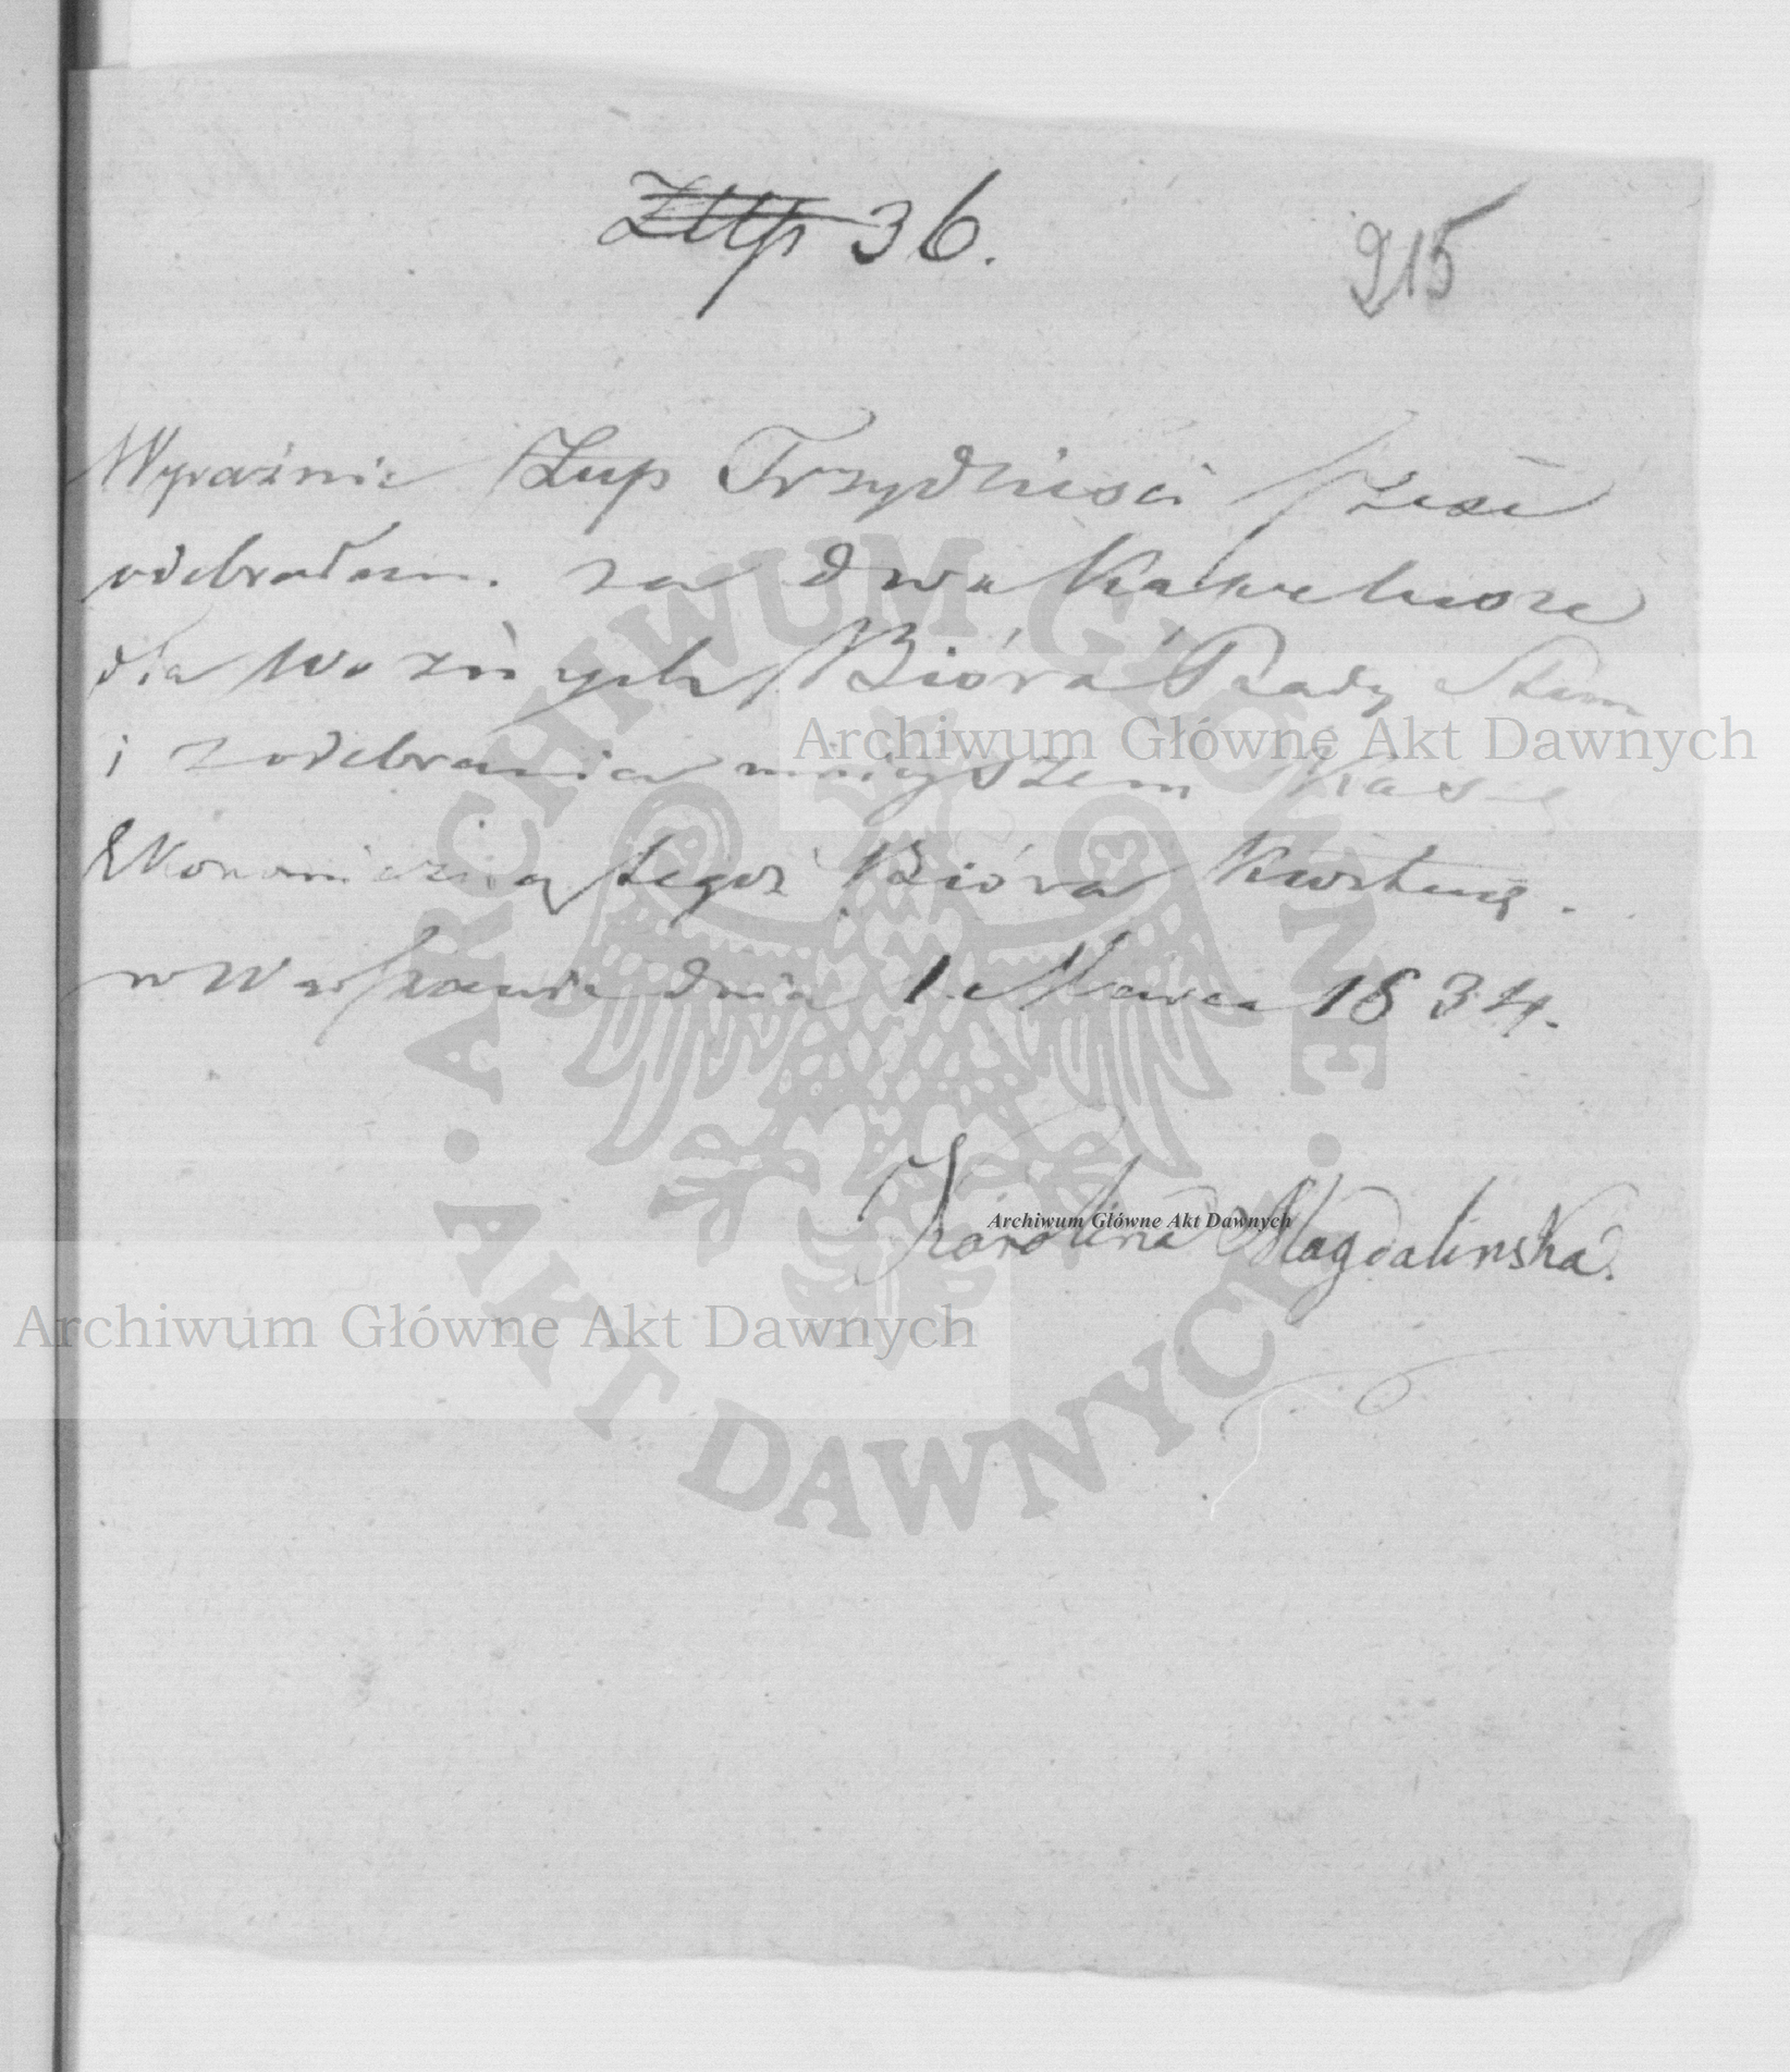 Złłp 36.
215
Wyraźnie Złłp Trzydzieści sześć
odebrałam. za dwa Kapelusze
dla Woźnych Bióra Rady Stanu
i z odebrania mniejszem Kasię
Ekonomiczną tegoż Bióra Kwituję.
w Warszawie dnia 1. Marca 1834.
Karolina Magdalinska.
Archiwum Główne Akt Dawnych
Archiwum Główne Akt Dawnych
Archiwum Główne Akt Dawnych
ARCHIWUM GŁÓWNE
AKT DAWNYCH